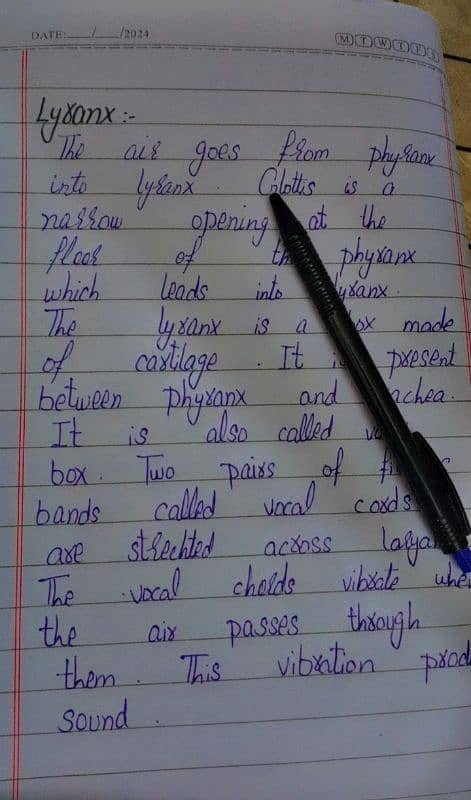 DATE:__/__/2024
M T W T F S
Lyranx :-
The air goes from phyranx
into lyranx . Glottis is a
narrow opening at the
floor of the phyranx
which leads into lyranx .
The lyranx is a box made
of cartilage . It is present
between phyranx and
It is also called
box . Two pairs of
bands called vocal cords
are strechted across
The vocal chords vibrate
the air passes through
them . This vibration
sound .